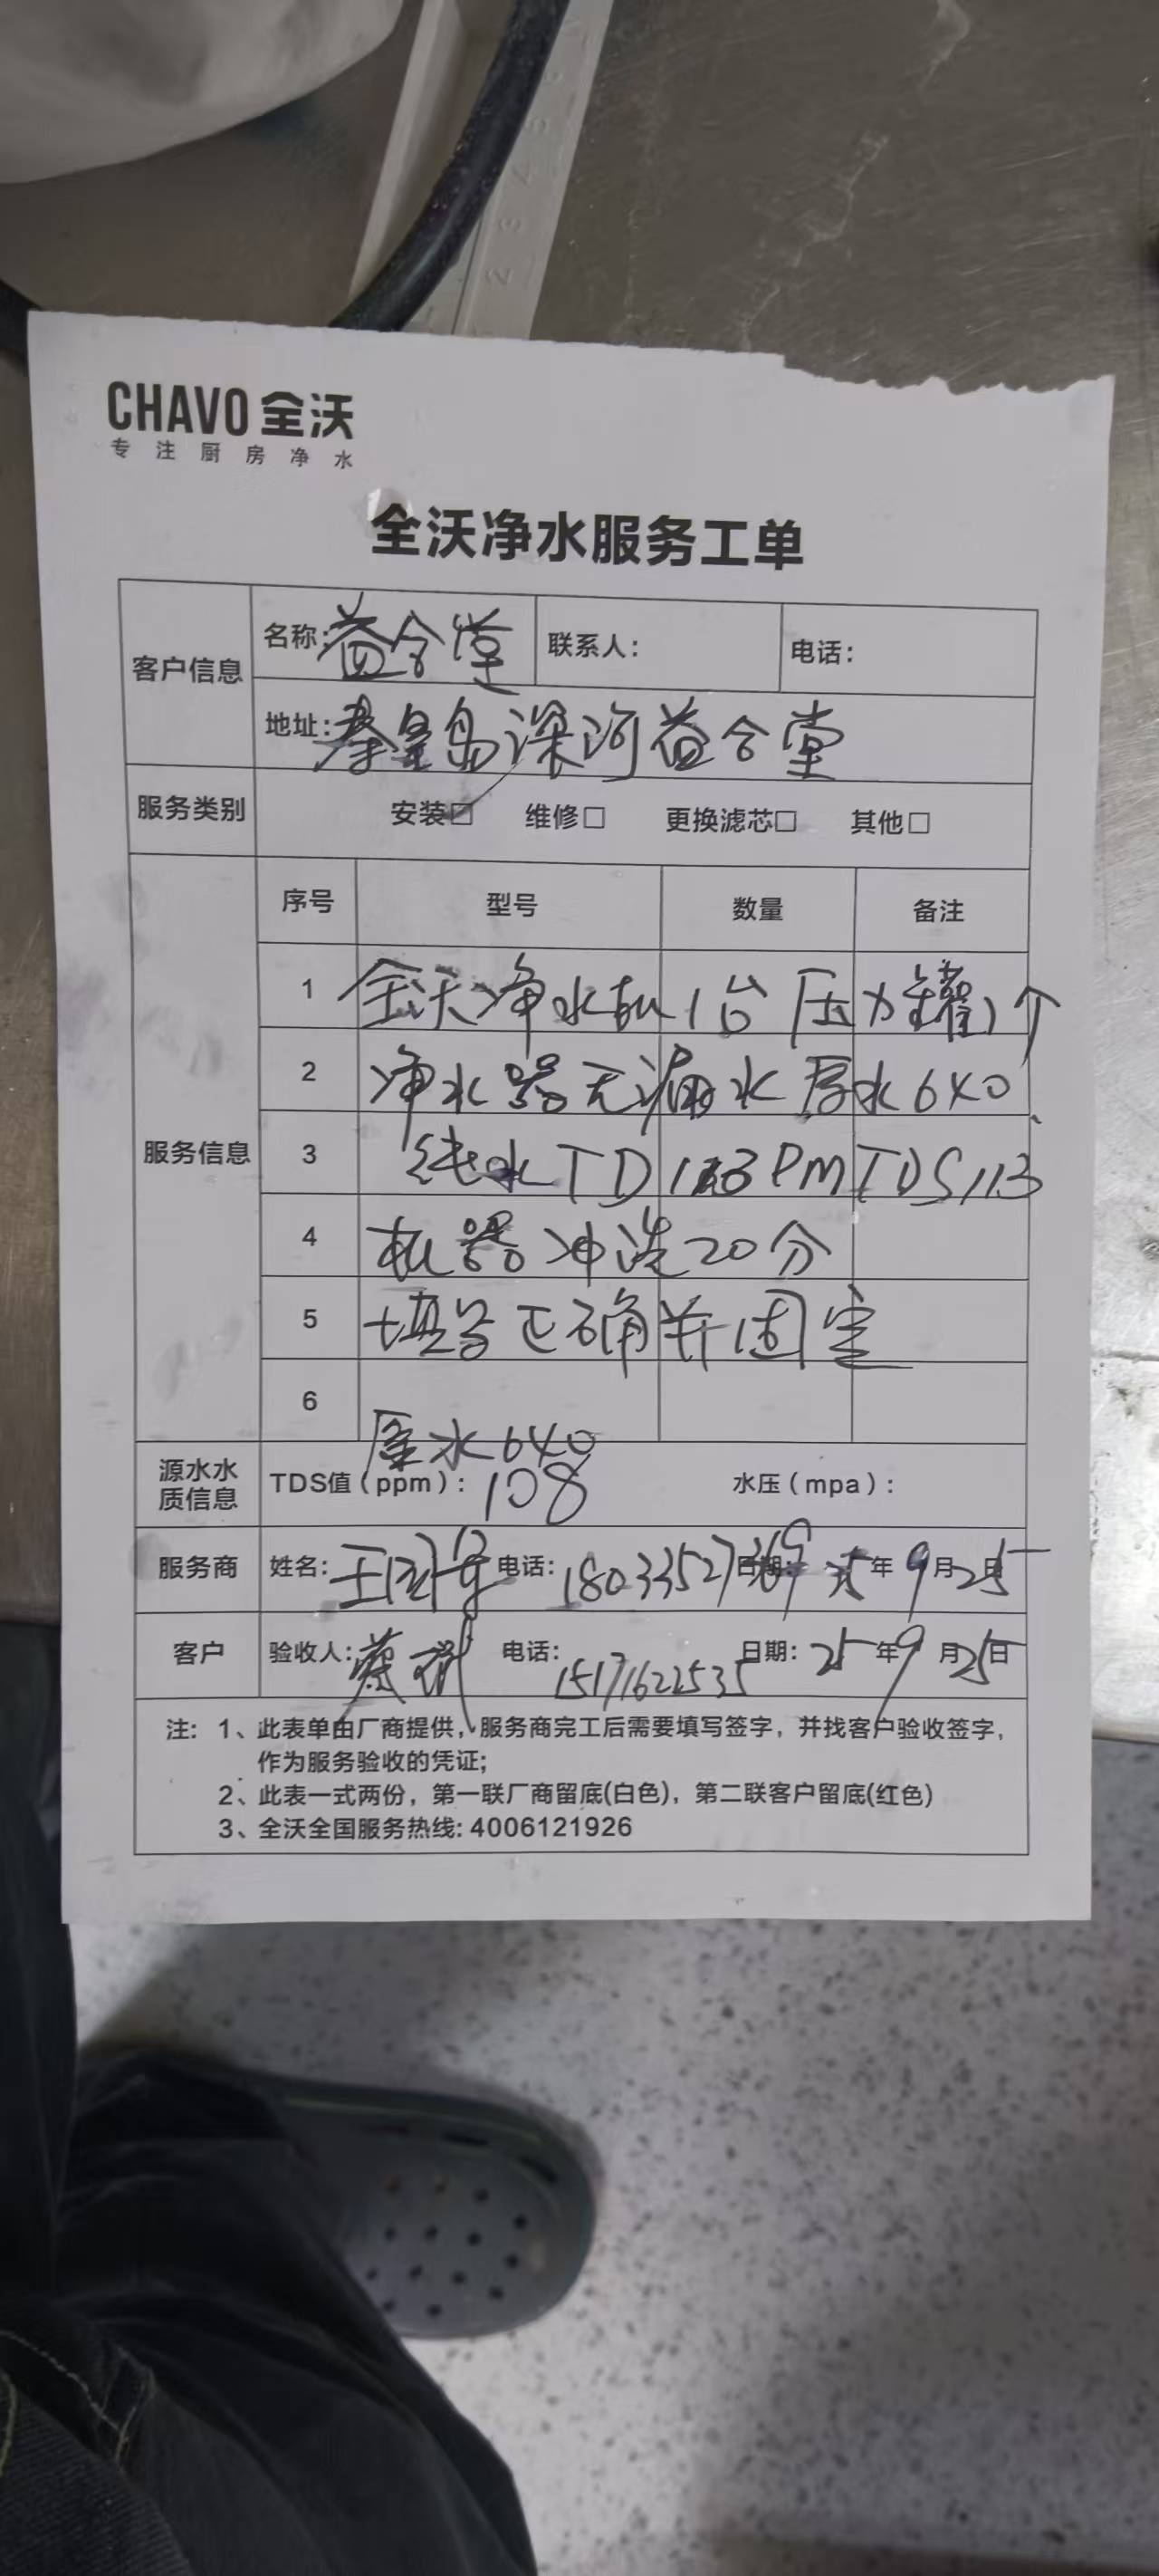 CHAVO 全沃
专注厨房净水
全沃净水服务工单
客户信息
名称: 益合堂 联系人: 电话:
地址: 秦皇岛深河益合堂
服务类别 安装☑ 维修□ 更换滤芯□ 其他□
服务信息
序号 型号 数量 备注
1 全沃净水机1台 压力罐1个
2 净水器无漏水 原水640
3 纯水TD PM TDS113
4 机器冲洗20分
5 正确并固定
6
原水640
源水水质信息 TDS值(ppm): 108 水压(mpa):
服务商 姓名: 王 电话: 日期: 年9月25日
客户 验收人: 电话: 15171622535 日期: 25年9月25日
注: 1、此表单由厂商提供, 服务商完工后需要填写签字, 并找客户验收签字,
作为服务验收的凭证;
2、此表一式两份, 第一联厂商留底(白色), 第二联客户留底(红色)
3、全沃全国服务热线: 4006121926